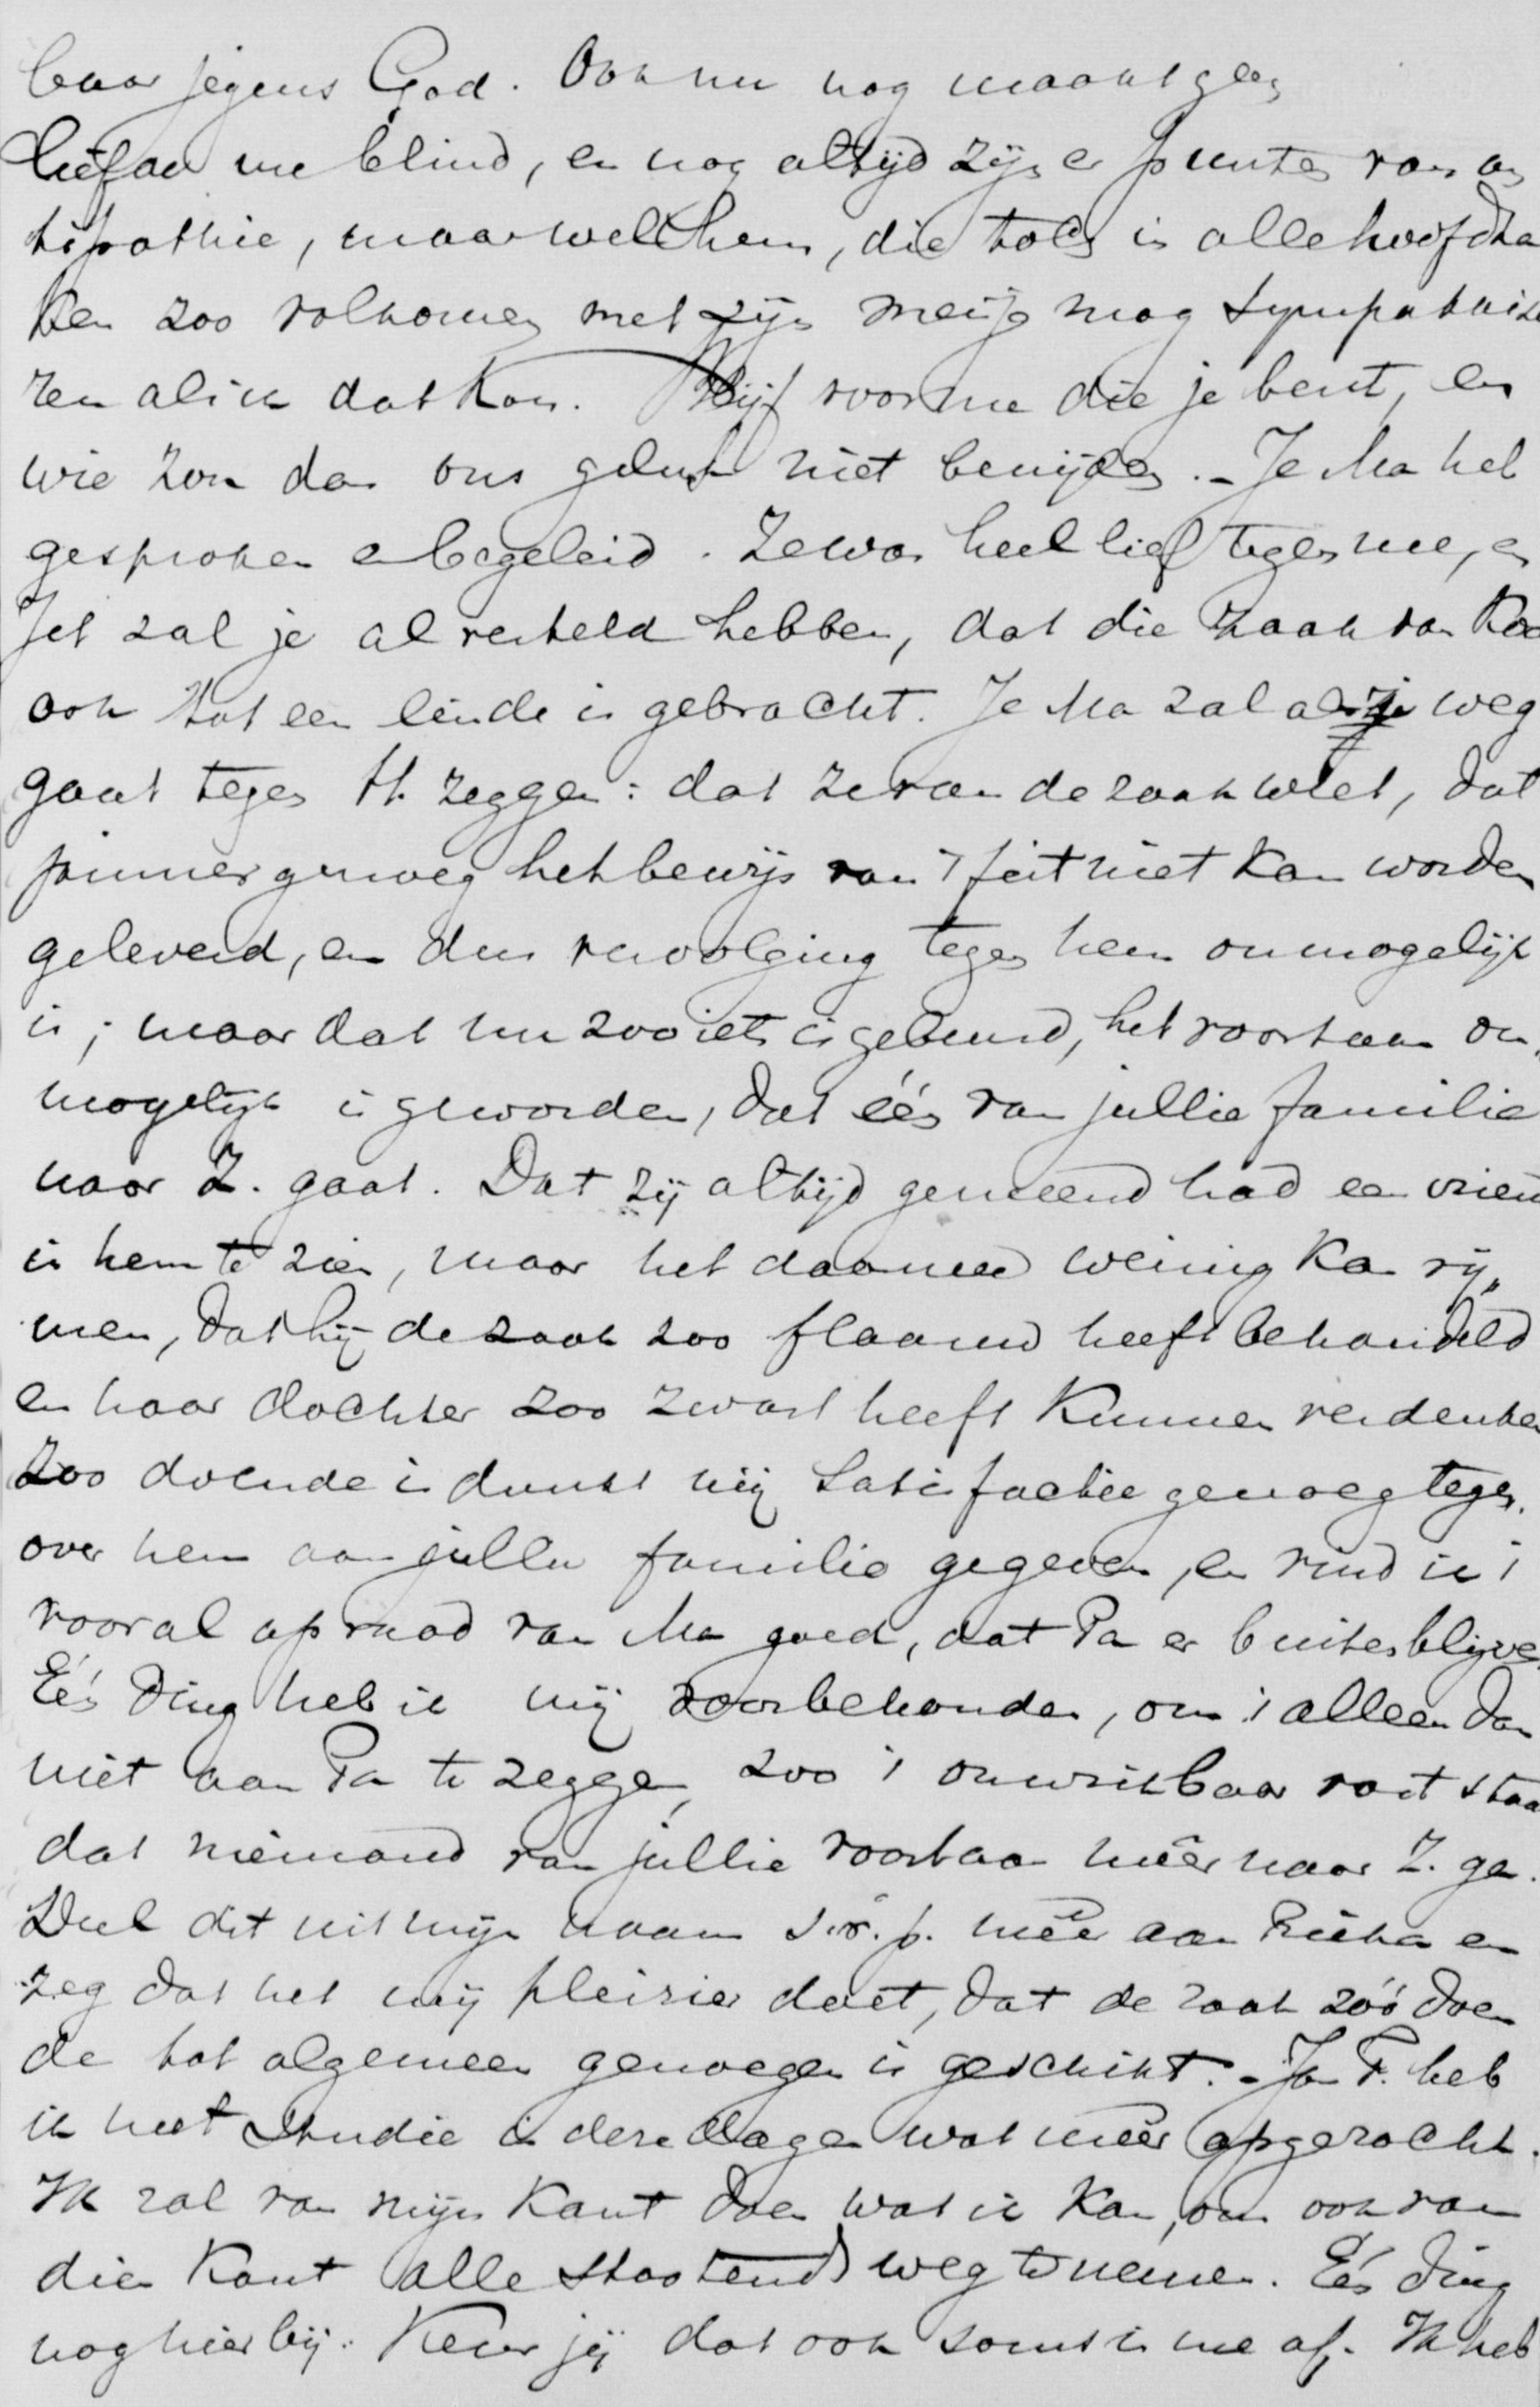 baar jegens God. Ook nu nog maakt geen
liefde me blind, en nog altijd zijn er punten van an
tipathie, maar wel hem, die toch in alle hoofdza
ken zoo volkomen met zijn meisje mag sympathise
ren als ik dat kan. Blijf voor me die je bent, en
wie zou dan ons geluk niet benijden. - Je Ma heb
gesproken en begeleid. Ze was heel lief tegen me, en
Jet zal je al verteld hebben, dat die zaak van Koo
ook tot een einde is gebracht. Je Ma zal als ze weg
gaat tegen H. zeggen: dat ze van de zaak weet, dat
jammer genoeg het bewijs van 't feit niet kan worden
geleverd, en dus vervolging tegen hem onmogelijk
is; maar dat nu zoo iets is gebeurd, het voortaan on„
mogelijk is geworden, dat één van jullie familie
naar Z. gaat. Dat zij altijd gemeend had een vriend
in hem te zien, maar het daarmeê weinig kan rij„
men, dat hij de zaak zoo flaauw heeft behandeld
en haar dochter zoo zwart heeft kunnen verdenken
Zoo doende is dunkt mij satisfactie genoeg tegen„
over hem aan jullie familie gegeven, en vind ik 't
vooral op raad van Ma goed, dat Pa er buiten blijve
Eén ding heb ik mij voorbehouden, om 't alleen dan
niet aan Pa te zeggen, zoo 't onwrikbaar vast staa
dat niemand van jullie voortaan méér naar Z. ga.
Deel dit uit mijn naam s.v.p. meê aan en
zeg dat het mij pleizier doet, dat de zaak zóó doen
de tot algemeen genoegen is geschikt. - Ja F. heb
ik met studie in deze dagen wat méér opgezocht.
Ik zal van mijn kant doen wat ik kan, om ook van
dien kant alle stootend weg te nemen. Eén ding
nog hierbij. Keur jij dat ook soms in me af. Ik heb